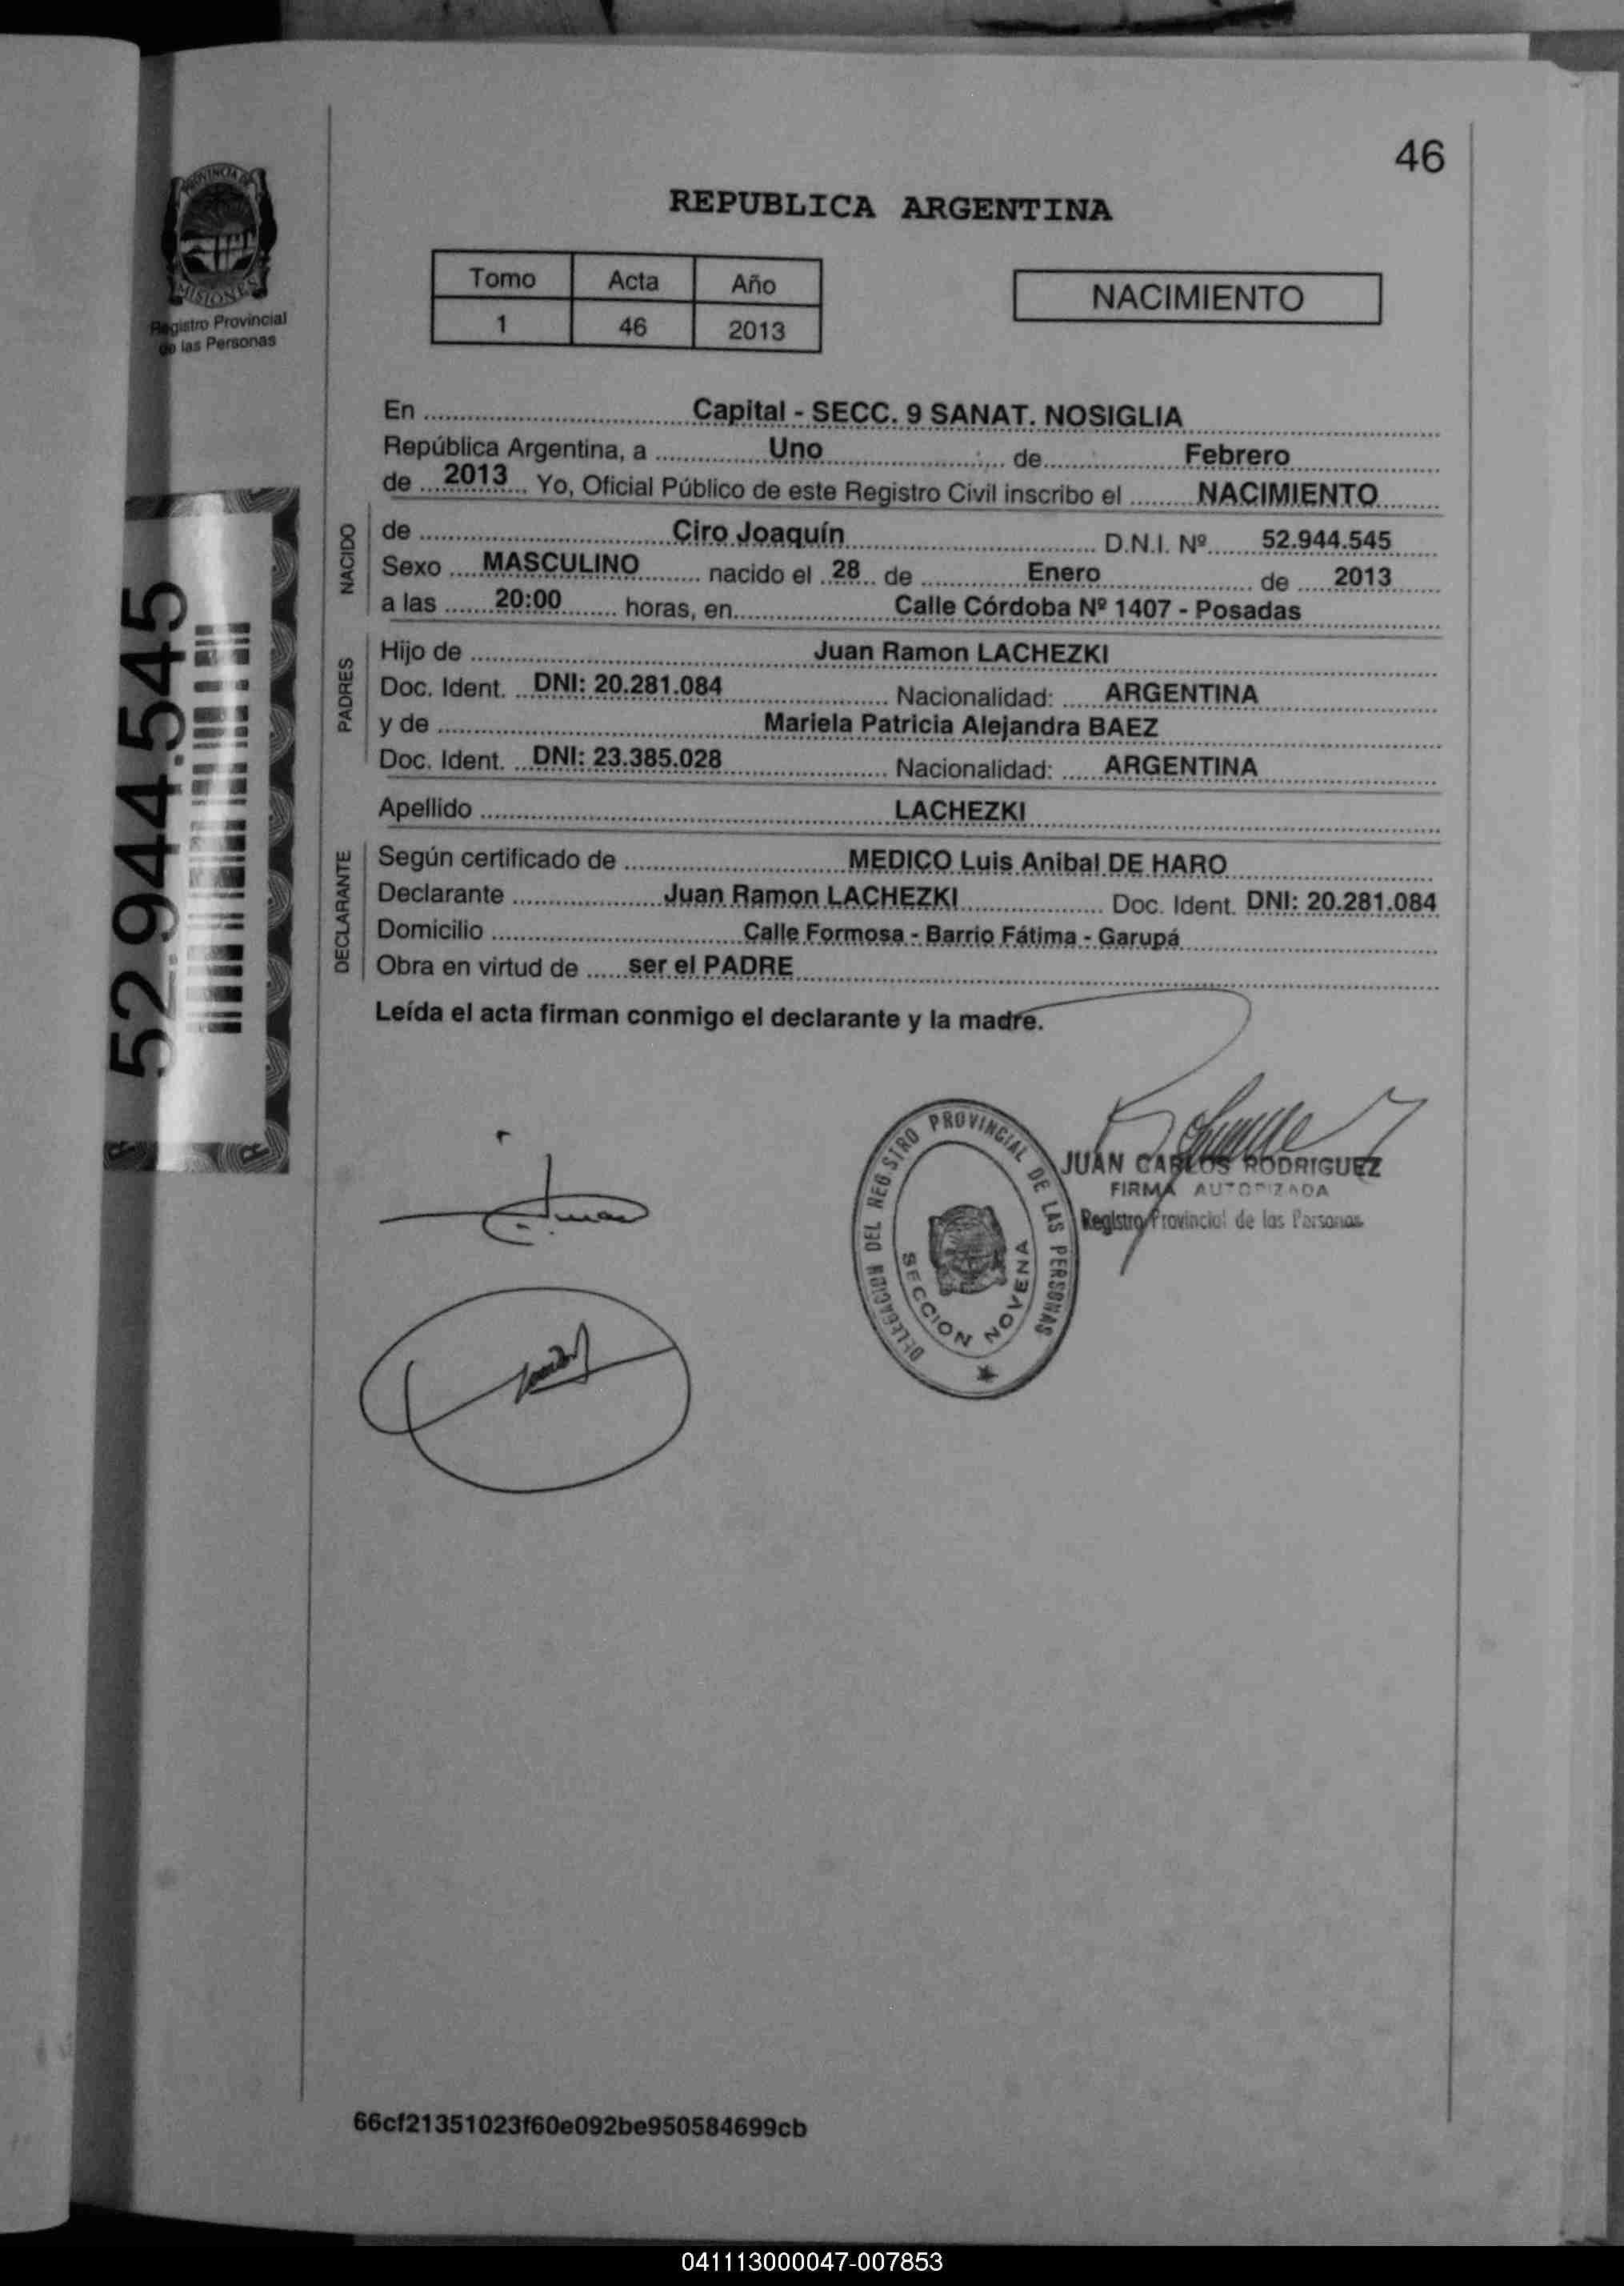 46
PROVINCIA DE
MISIONES
Registro Provincial
de las Personas
REPUBLICA ARGENTINA
Tomo Acta Año
1 46 2013
NACIMIENTO
En Capital - SECC. 9 SANAT. NOSIGLIA
República Argentina, a Uno de Febrero
de 2013 Yo, Oficial Público de este Registro Civil inscribo el NACIMIENTO
NACIDO
de Ciro Joaquín D.N.I. Nº 52.944.545
Sexo MASCULINO nacido el 28 de Enero de 2013
a las 20:00 horas, en Calle Córdoba Nº 1407 - Posadas
PADRES
Hijo de Juan Ramon LACHEZKI
Doc. Ident. DNI: 20.281.084 Nacionalidad: ARGENTINA
y de Mariela Patricia Alejandra BAEZ
Doc. Ident. DNI: 23.385.028 Nacionalidad: ARGENTINA
Apellido LACHEZKI
DECLARANTE
Según certificado de MEDICO Luis Anibal DE HARO
Declarante Juan Ramon LACHEZKI Doc. Ident. DNI: 20.281.084
Domicilio Calle Formosa - Barrio Fátima - Garupá
Obra en virtud de ser el PADRE
Leída el acta firman conmigo el declarante y la madre.
52.944.545
DELEGACION DEL REGISTRO PROVINCIAL DE LAS PERSONAS
SECCION NOVENA
JUAN CARLOS RODRIGUEZ
FIRMA AUTORIZADA
Registro Provincial de las Personas
66cf21351023f60e092be950584699cb
041113000047-007853